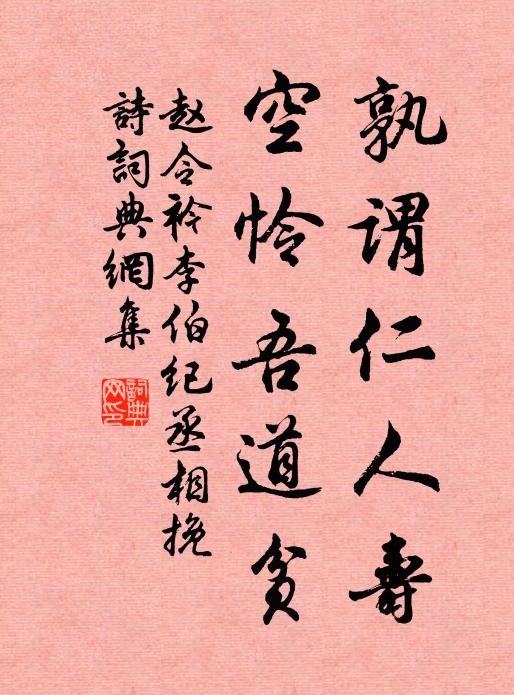 孰谓仁人寿
空怜吾道贫
赵令衿李伯纪丞相挽
詩詞典網集
詞典网印